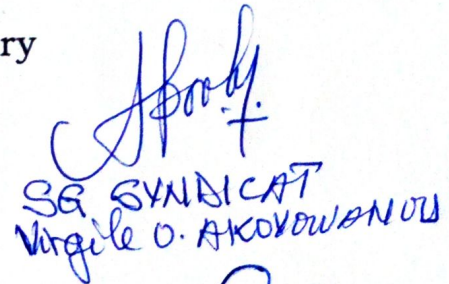 ry
SG SYNDICAT
Virgile O. AKOVOWANOU